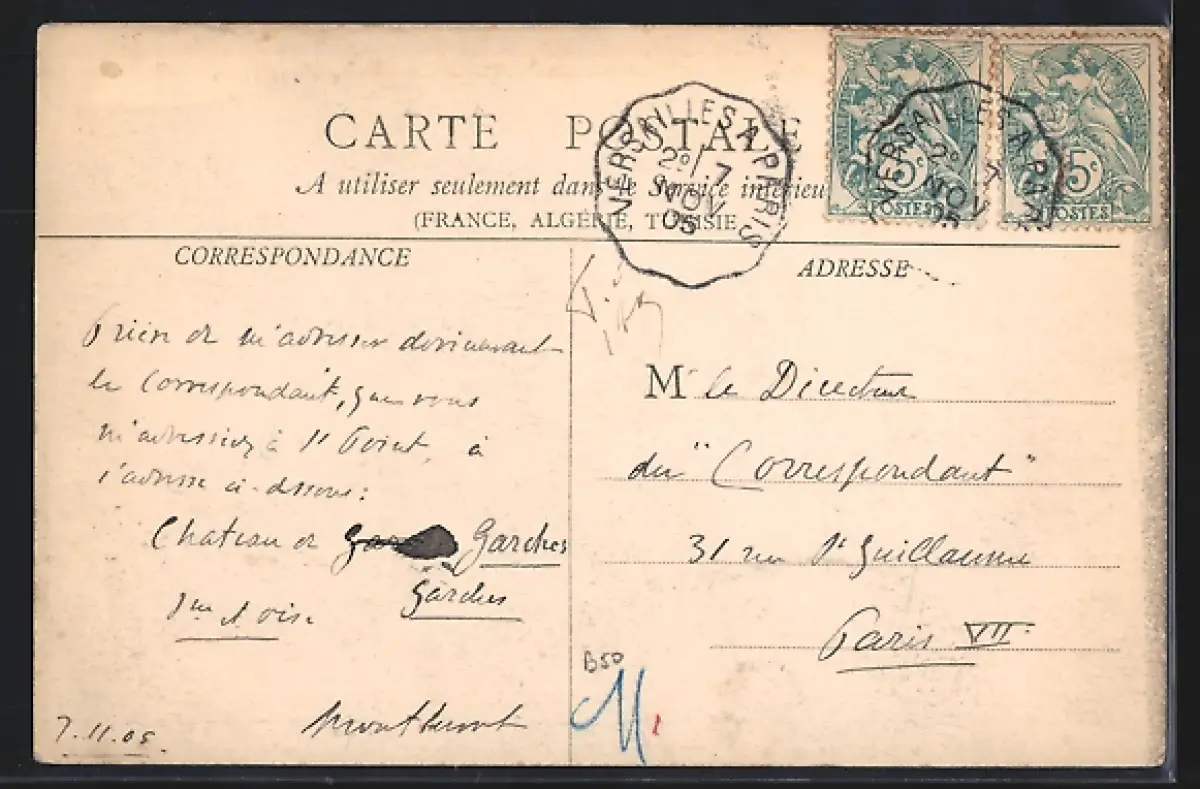 CARTE POSTALE
A utiliser seulement dans le Service intérieu
(FRANCE, ALGÉRIE, TUNISIE
VERSAILLES A PARIS
2º/ 7
NOV
05
VERSAILLES A PAR
2º/ 7
NOV
05
5c
POSTES
5c
POSTES
CORRESPONDANCE
Prière de m'adresser dorénavant
le Correspondant, que vous
m'adressiez à St Point, à
l'adresse ci-dessous:
Chateau de Garches
Garches
Sne & Oise
7.11.05.
ADRESSE
Mr le Directeur
du "Correspondant"
31 rue St Guillaume
Paris VII
B50